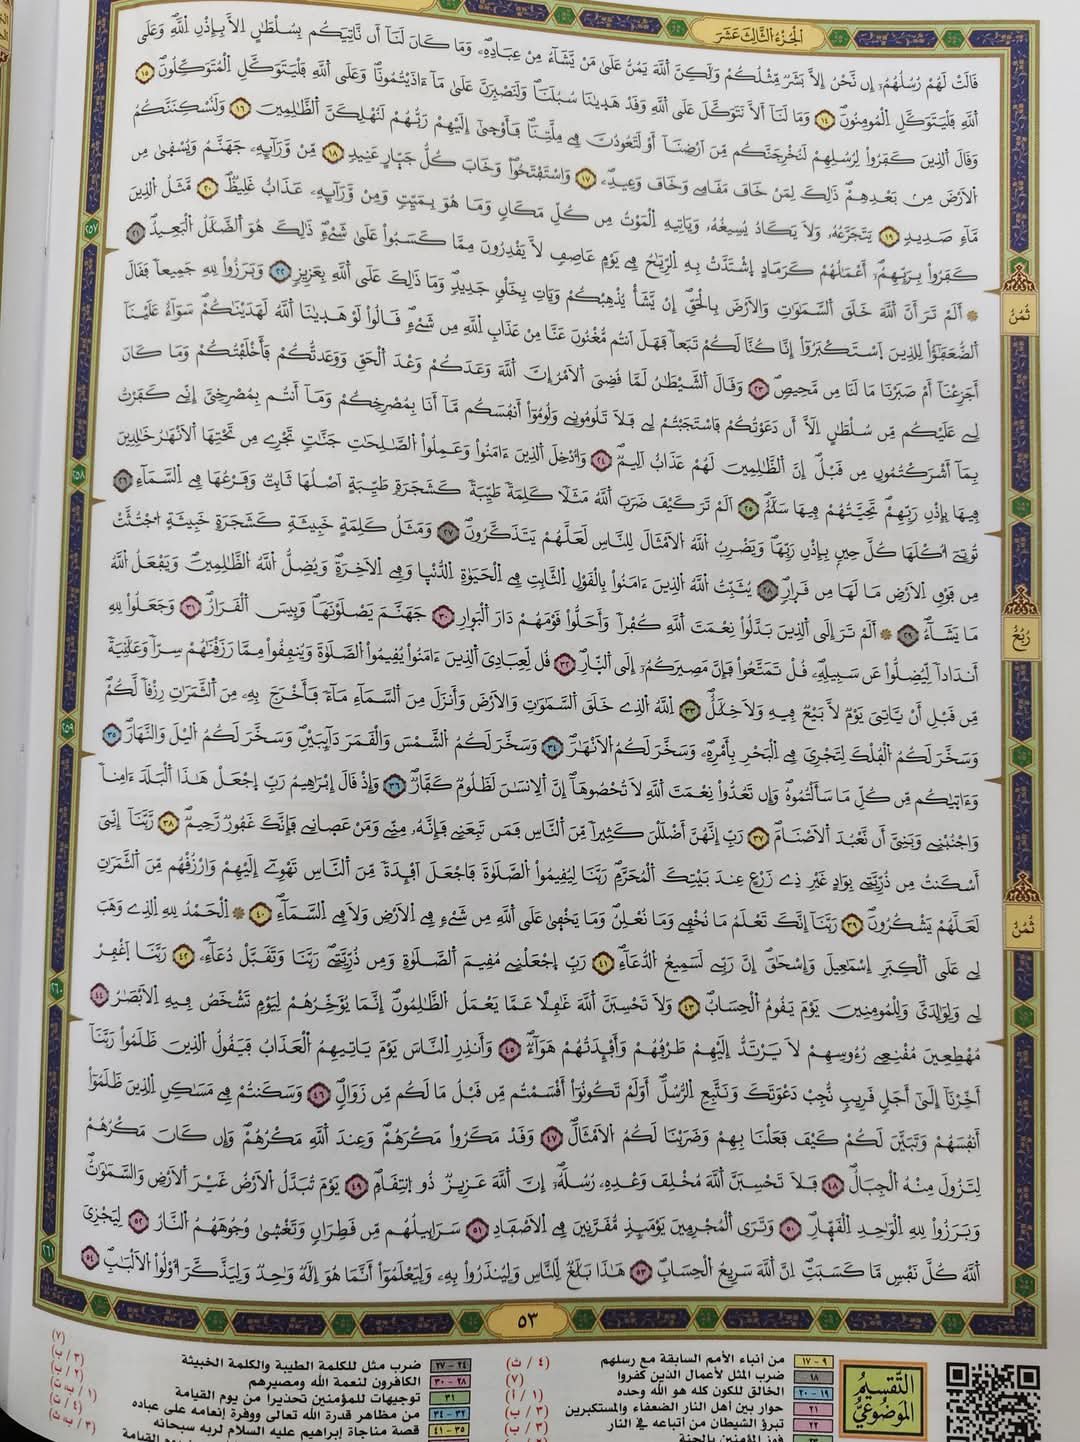 الجزء الثالث عشر
قالت لهم رسلهم إن نحن إلا بشر مثلكم ولكن الله يمن على من يشاء من عباده وما كان لنا أن ناتيكم بسلطن الا بإذن الله وعلى
الله فليتوكل المومنون ١٤ وما لنا ألا نتوكل على الله وقد هدينا سبلنا ولنصبرن على ما ءاذيتمونا وعلى الله فليتوكل المتوكلون ١٥
وقال الذين كفروا لرسلهم لنخرجنكم من ارضنا أو لتعودن في ملتنا فأوحى إليهم ربهم لنهلكن الظلمين ١٦ ولنسكننكم
الارض من بعدهم ذلك لمن خاف مقامي وخاف وعيدي ١٧ واستفتحوا وخاب كل جبار عنيد ١٨ من ورآيه جهنم ويسقى من
ماء صديد ١٩ يتجرعه ولا يكاد يسيغه وياتيه الموت من كل مكان وما هو بميت ومن ورآيه عذاب غليظ ٢٠ مثل الذين
كفروا بربهم أعملهم كرماد اشتدت به الريح في يوم عاصف لا يقدرون مما كسبوا على شيء ذلك هو الضلل البعيد ٢١
ألم تر أن الله خلق السموت والارض بالحق إن يشأ يذهبكم ويات بخلق جديد وما ذلك على الله بعزيز ٢٢ وبرزوا لله جميعا فقال
الضعفؤا للذين استكبروا إنا كنا لكم تبعا فهل انتم مغنون عنا من عذاب الله من شيء قالوا لو هدينا الله لهدينكم سواء علينا
أجزعنا أم صبرنا ما لنا من محيص ٢٣ وقال الشيطن لما قضي الامر إن الله وعدكم وعد الحق ووعدتكم فأخلفتكم وما كان
لي عليكم من سلطن الا أن دعوتكم فاستجبتم لي فلا تلوموني ولوموا أنفسكم ما أنا بمصرخكم وما أنتم بمصرخي إني كفرت
بما أشركتمون من قبل إن الظلمين لهم عذاب اليم ٢٤ وأدخل الذين ءامنوا وعملوا الصلحت جنت تجري من تحتها الانهر خلدين
فيها بإذن ربهم تحيتهم فيها سلم ٢٥ الم تر كيف ضرب الله مثلا كلمة طيبة كشجرة طيبة اصلها ثابت وفرعها في السماء ٢٦
توتي أكلها كل حين بإذن ربها ويضرب الله الامثال للناس لعلهم يتذكرون ٢٧ ومثل كلمة خبيثة كشجرة خبيثة اجتثت
من فوق الارض ما لها من قرار ٢٨ يثبت الله الذين ءامنوا بالقول الثابت في الحيوة الدنيا وفي الاخرة ويضل الله الظلمين ويفعل الله
ما يشاء ٢٩ ألم تر إلى الذين بدلوا نعمت الله كفرا وأحلوا قومهم دار البوار ٣٠ جهنم يصلونها وبيس القرار ٣١ وجعلوا لله
أندادا ليضلوا عن سبيله قل تمتعوا فإن مصيركم إلى النار ٣٢ قل لعبادي الذين ءامنوا يقيموا الصلوة وينفقوا مما رزقنهم سرا وعلنية
من قبل أن ياتي يوم لا بيع فيه ولا خلل ٣٣ الله الذي خلق السموت والارض وأنزل من السماء ماء فأخرج به من الثمرت رزقا لكم
وسخر لكم الفلك لتجري في البحر بأمره وسخر لكم الانهر ٣٤ وسخر لكم الشمس والقمر دايبين وسخر لكم اليل والنهار ٣٥
وءاتيكم من كل ما سألتموه وإن تعدوا نعمت الله لا تحصوها إن الانسن لظلوم كفار ٣٦ وإذ قال إبرهيم رب اجعل هذا البلد ءامنا
واجنبني وبني أن نعبد الاصنام ٣٧ رب إنهن أضللن كثيرا من الناس فمن تبعني فإنه مني ومن عصاني فإنك غفور رحيم ٣٨ ربنا إني
أسكنت من ذريتي بواد غير ذي زرع عند بيتك المحرم ربنا ليقيموا الصلوة فاجعل أفئدة من الناس تهوي إليهم وارزقهم من الثمرت
لعلهم يشكرون ٣٩ ربنا إنك تعلم ما نخفي وما نعلن وما يخفى على الله من شيء في الارض ولا في السماء ٤٠ الحمد لله الذي وهب
لي على الكبر إسمعيل وإسحق إن ربي لسميع الدعاء ٤١ رب اجعلني مقيم الصلوة ومن ذريتي ربنا وتقبل دعاء ٤٢ ربنا اغفر
لي ولولدي وللمومنين يوم يقوم الحساب ٤٣ ولا تحسبن الله غفلا عما يعمل الظلمون إنما يوخرهم ليوم تشخص فيه الابصر ٤٤
مهطعين مقنعي رءوسهم لا يرتد إليهم طرفهم وأفئدتهم هواء ٤٥ وأنذر الناس يوم ياتيهم العذاب فيقول الذين ظلموا ربنا
أخرنا إلى أجل قريب نجب دعوتك ونتبع الرسل أولم تكونوا أقسمتم من قبل ما لكم من زوال ٤٦ وسكنتم في مسكن الذين ظلموا
أنفسهم وتبين لكم كيف فعلنا بهم وضربنا لكم الامثال ٤٧ وقد مكروا مكرهم وعند الله مكرهم وإن كان مكرهم
لتزول منه الجبال ٤٨ فلا تحسبن الله مخلف وعده رسله إن الله عزيز ذو انتقام ٤٩ يوم تبدل الارض غير الارض والسموت
وبرزوا لله الوحد القهار ٥٠ وترى المجرمين يومئذ مقرنين في الاصفاد ٥١ سرابيلهم من قطران وتغشى وجوههم النار ٥٢ ليجزي
الله كل نفس ما كسبت إن الله سريع الحساب ٥٣ هذا بلغ للناس ولينذروا به وليعلموا أنما هو إله وحد وليذكر أولوا الالبب ٥٤
ثمن
ربع
ثمن
٢٥٧
٢٥٨
٢٥٩
٢٦٠
٢٦١
٥٣
التقسيم الموضوعي
٩ - ١٧ من أنباء الأمم السابقة مع رسلهم (٤ / ث)
١٨ ضرب المثل لأعمال الذين كفروا (٧)
١٩ - ٢٠ الخالق للكون كله هو الله وحده (١ / أ)
٢١ حوار بين أهل النار الضعفاء والمستكبرين (٣ / ب)
٢٢ تبرؤ الشيطان من أتباعه في النار (٣ / ب)
٢٣ فوز المؤمنين بالجنة
٢٤ - ٢٧ ضرب مثل للكلمة الطيبة والكلمة الخبيثة (٧)
٢٨ - ٣٠ الكافرون لنعمة الله ومصيرهم (٣ / ب)
٣١ توجيهات للمؤمنين تحذيرا من يوم القيامة
٣٢ - ٣٤ من مظاهر قدرة الله تعالى ووفرة إنعامه على عباده
٣٥ - ٤١ قصة مناجاة إبراهيم عليه السلام لربه سبحانه